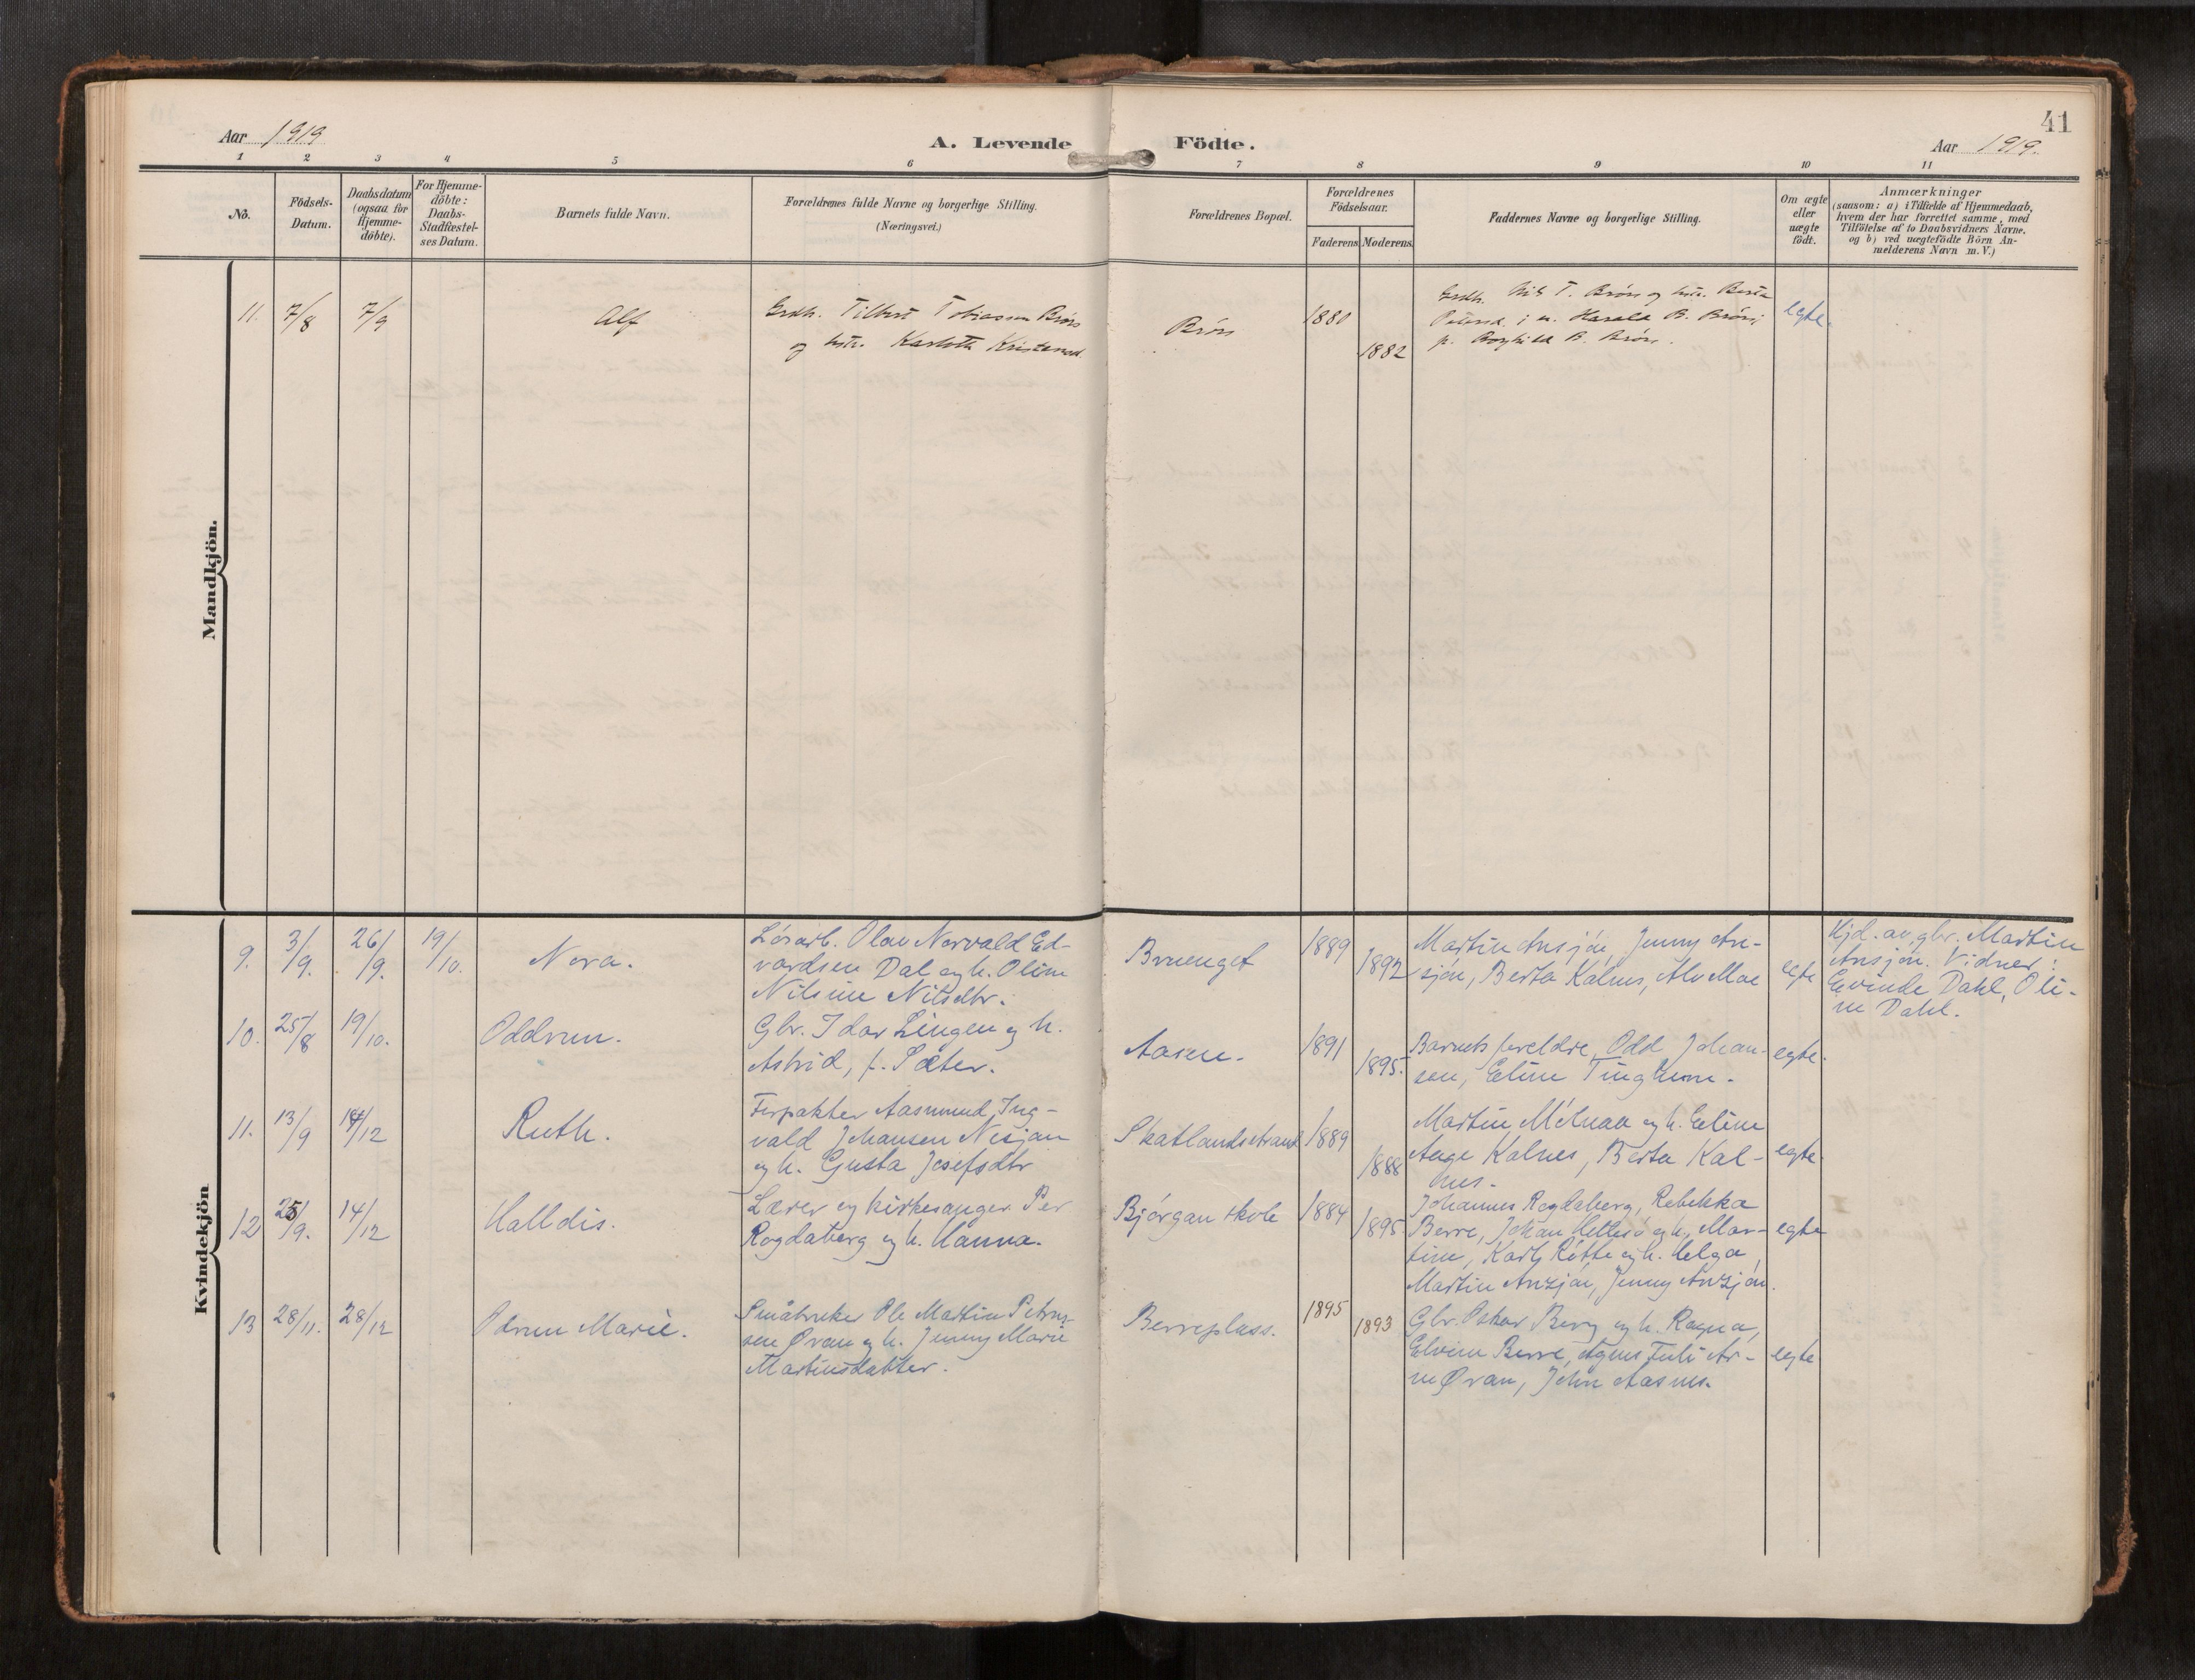 41
Aar 1919
A. Levende Födte.
Aar 1919.
1 2 3 4 5 6 7 8 9 10 11
No.
Födsels-
Datum.
Daabsdatum
(ogsaa for
Hjemme-
döbte).
For Hjemme-
döbte:
Daabs-
Stadfæstel-
ses Datum.
Barnets fulde Navn.
Forældrenes fulde Navne og borgerlige Stilling.
(Næringsvei.)
Forældrenes Bopæl.
Forældrenes
Födselsaar.
Faderens Moderens
Faddernes Navne og borgerlige Stilling.
Om ægte
eller
uægte
födt.
Anmærkninger
(saasom: a) i Tilfælde af Hjemmedaab,
hvem der har forrettet samme, med
Tilföielse af to Daabsvidners Navne,
og b) ved uægtefödte Börn An-
melderens Navn m. V.)
Mandkjön.
11. 7/8 7/9
Alf
Tilbert Tobiassen Brörs
og hstr. Karlotta Kristensd.
Brörs
1880
1882
Nils T. Brörs og hstr. Berta
Petersd. j. m. Harald B. Brörs;
p. Borghild B. Brörs.
egte.
Kvindekjön
9. 3/9. 26/9. 19/10.
Nora.
Lösarb. Olav Norvald Ed-
vardsen Dal og h. Oline
Nilsine Nilsdtr.
Bruenget
1889
1892
Martin Ansjön, Jenny An-
sjön, Berta Kalnes, Alv Moe
egte
Hjd. av gbr. Martin
Ansjön. Vidner:
Evinde Dahl, Oli-
ne Dahl.
10. 25/8 19/10.
Oddrun.
Gbr. Idar Lingen og h.
Astrid, f. Sæter.
Aasen.
1891
1895.
Barnets foreldre, Odd Johan-
sen, Eline Tinghem.
egte.
11. 13/9 14/12
Ruth.
Forpakter Aasmund Ing-
vald Johansen Nesjan
og h. Gusta Josefsdtr
Skatlandsstrand
1889
1888
Martin Mölnaa og h. Eline
Aage Kalnes, Berta Kal-
nes.
egte.
12 25/9. 14/12
Halldis.
Lærer og kirkesanger Per
Rogdaberg og h. Hanna.
Björgan skole
1884
1895.
Johannes Rogdaberg, Rebekka
Berre, Johan Hettesö og h. Mar-
tine, Karl Rötte og h. Helga,
Martin Anzjön, Jenny Anzjön.
egte
13 28/11. 28/12
Odrun Marie.
Småbruker Ole Martin Petrus-
sen Øvan og h. Jenny Marie
Martinsdatter.
Berreplass.
1895
1893
Gbr. Oskar Berg og h. Ragna,
Elvine Berre, Agnes Ar-
ne Øvan, John Aasnes.
egte